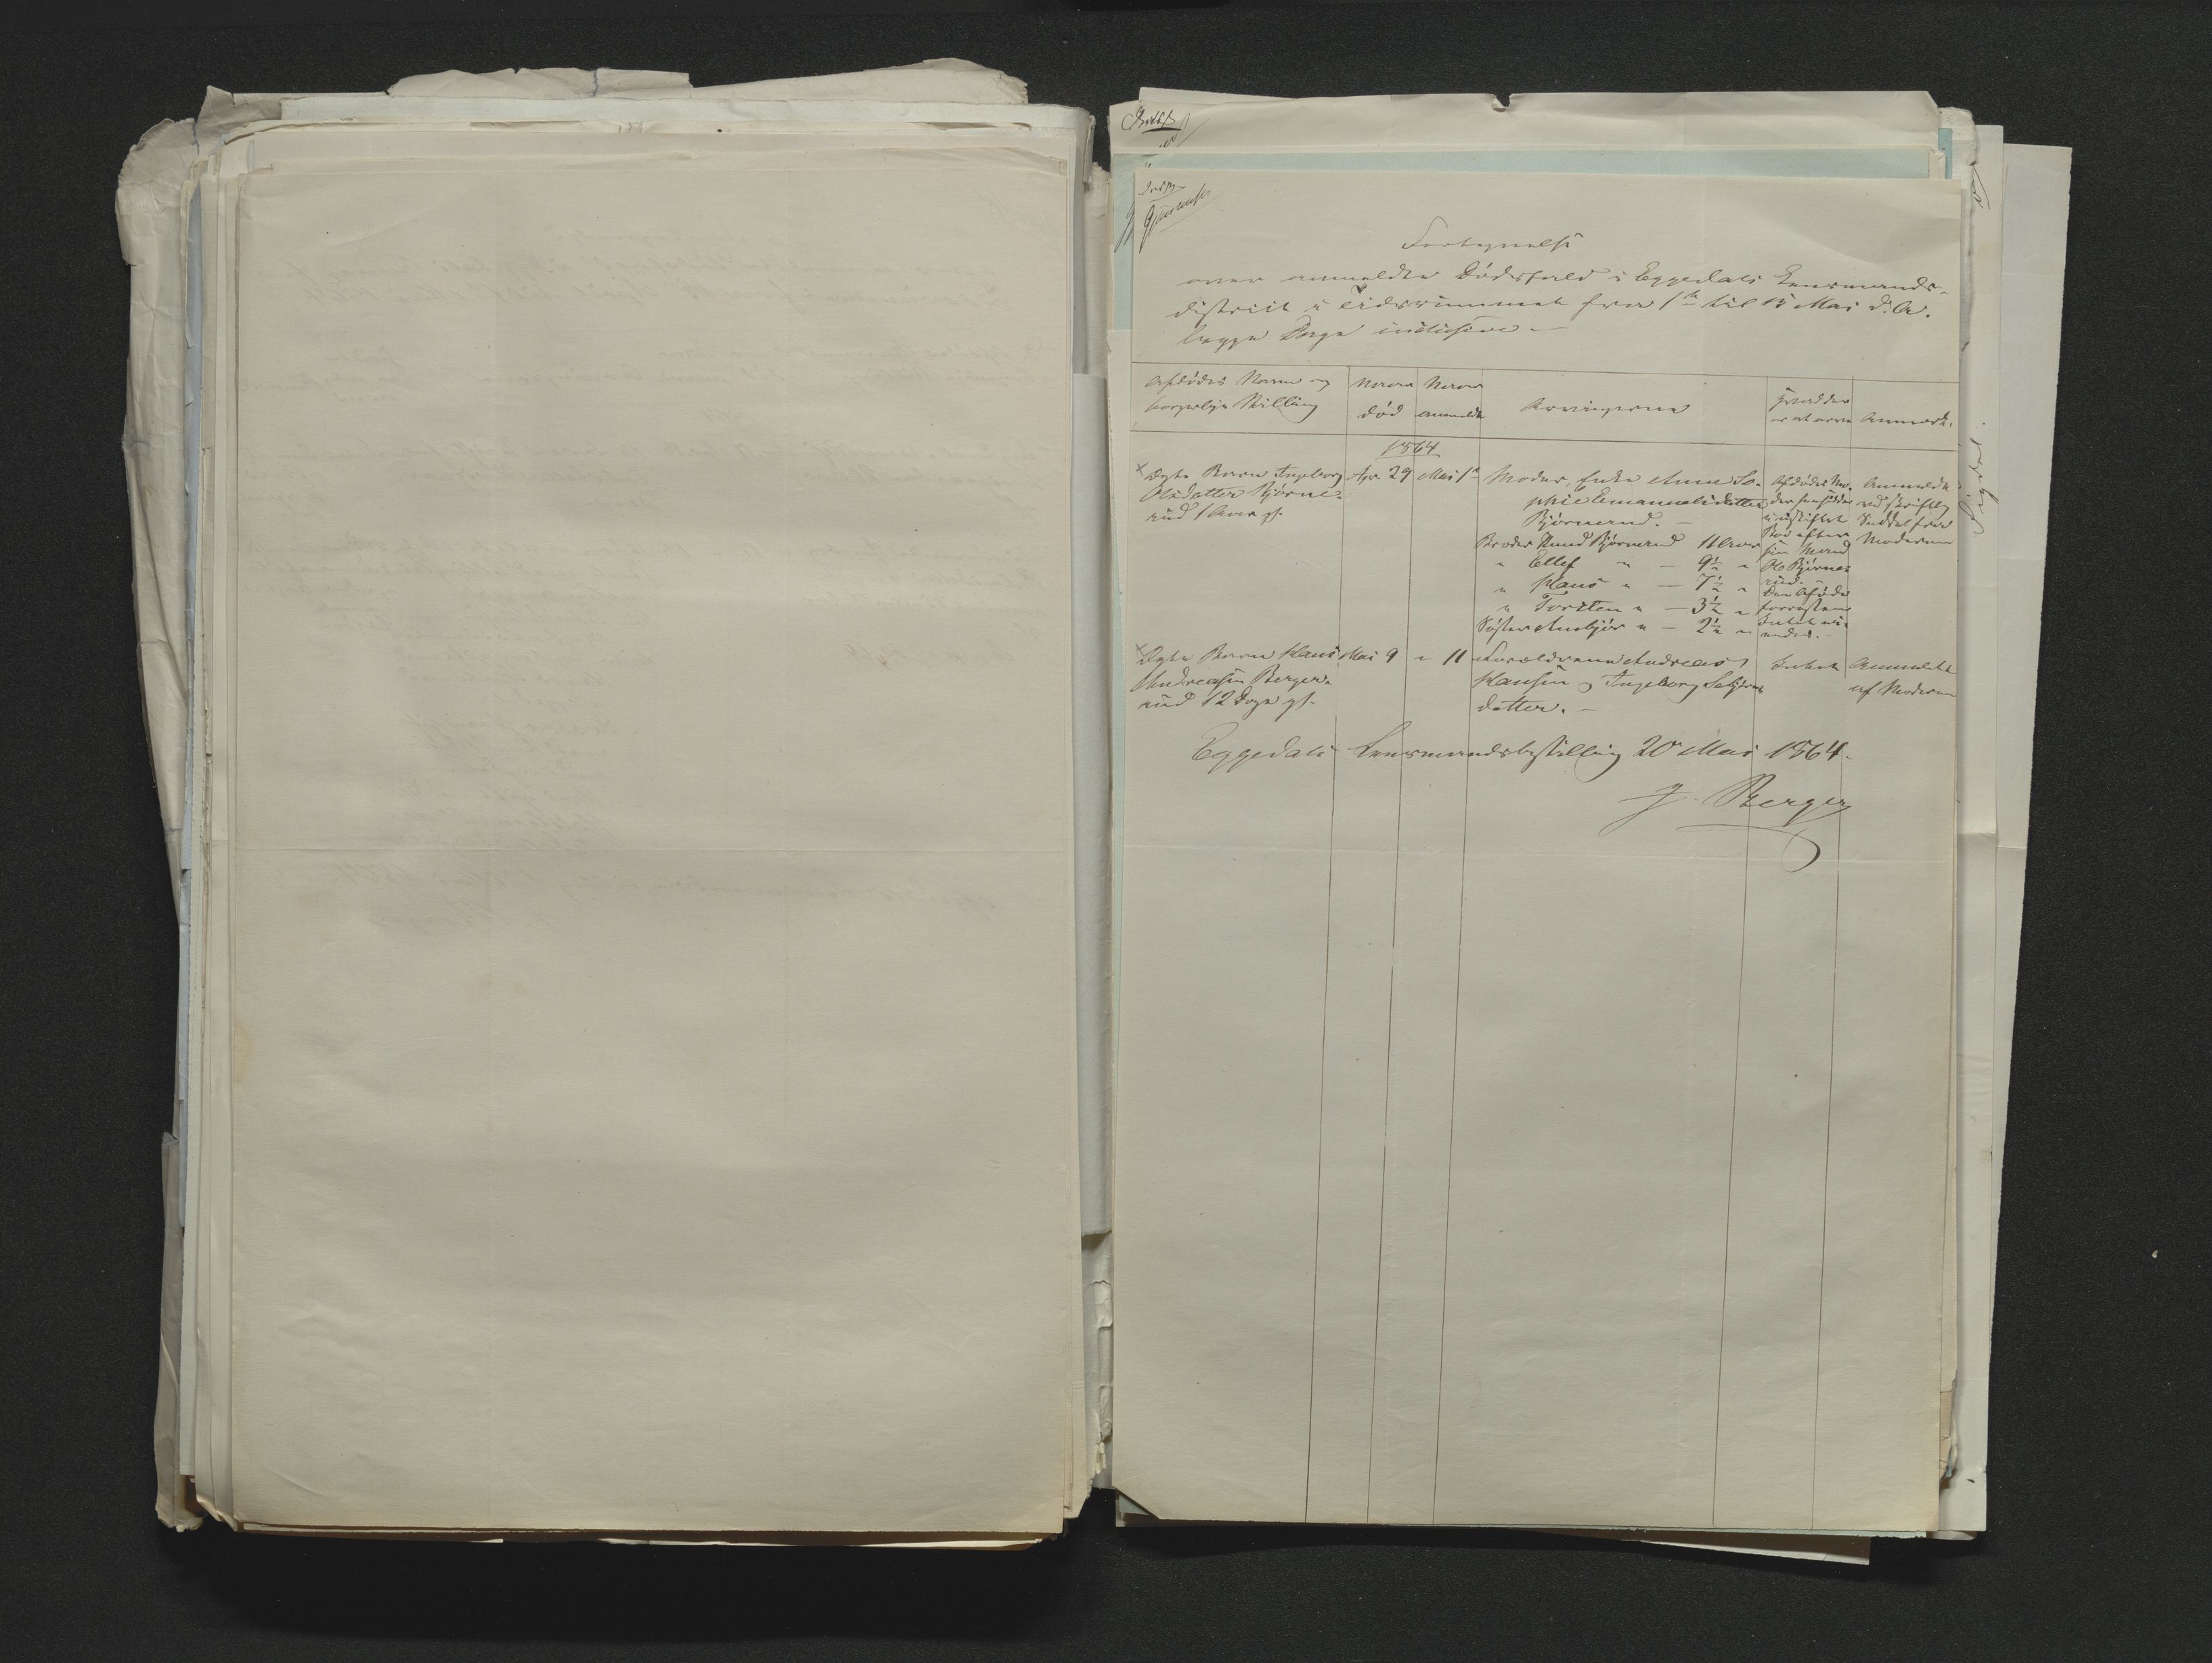 Fortegnelse
over anmeldte Dødsfald i Eggedals Lensmands-
district i Tidsrummet fra 1ste til 15 Mai d. A.
begge Dage inclusive -
Afdødes Navn og
borgerlige Stilling
Naar
død
Naar
anmeldt
Arvingerne
Hvad der
er at arve
Anmærk.
1864
Ægte Barn Ingeborg
Olsdatter Bjørne-
rud 1 Aar gl.
Apr. 29
Mai 1ste
Moder, Enke Anne So-
phie Emanuelsdatter
Bjørnerud. -
Broder Knud Bjørnerud 11 Aar
" Ellef " - 9½ "
" Hans " - 7½ "
" Torsten " - 3½ "
Søster Anbjør " - 2½ "
Afdødes Mo-
der hensidder
i uskiftet
Bo efter
sin Mand
Ole Bjørne-
rud. -
Den Afdøde
forresten
Intet ei-
endes. -
Anmeldt
ved skriftlig
Seddel fra
Moderen
Ægte Barn Hans
Andreasen Berge-
rud 12 Dage gl.
Mai 9
" 11
Forældrene Andreas
Hansen og Ingeborg
datter. -
Intet
Anmeldt
af Moderen
Eggedals Lensmandsbestilling 20 Mai 1864.
J. Berger
Sigdal